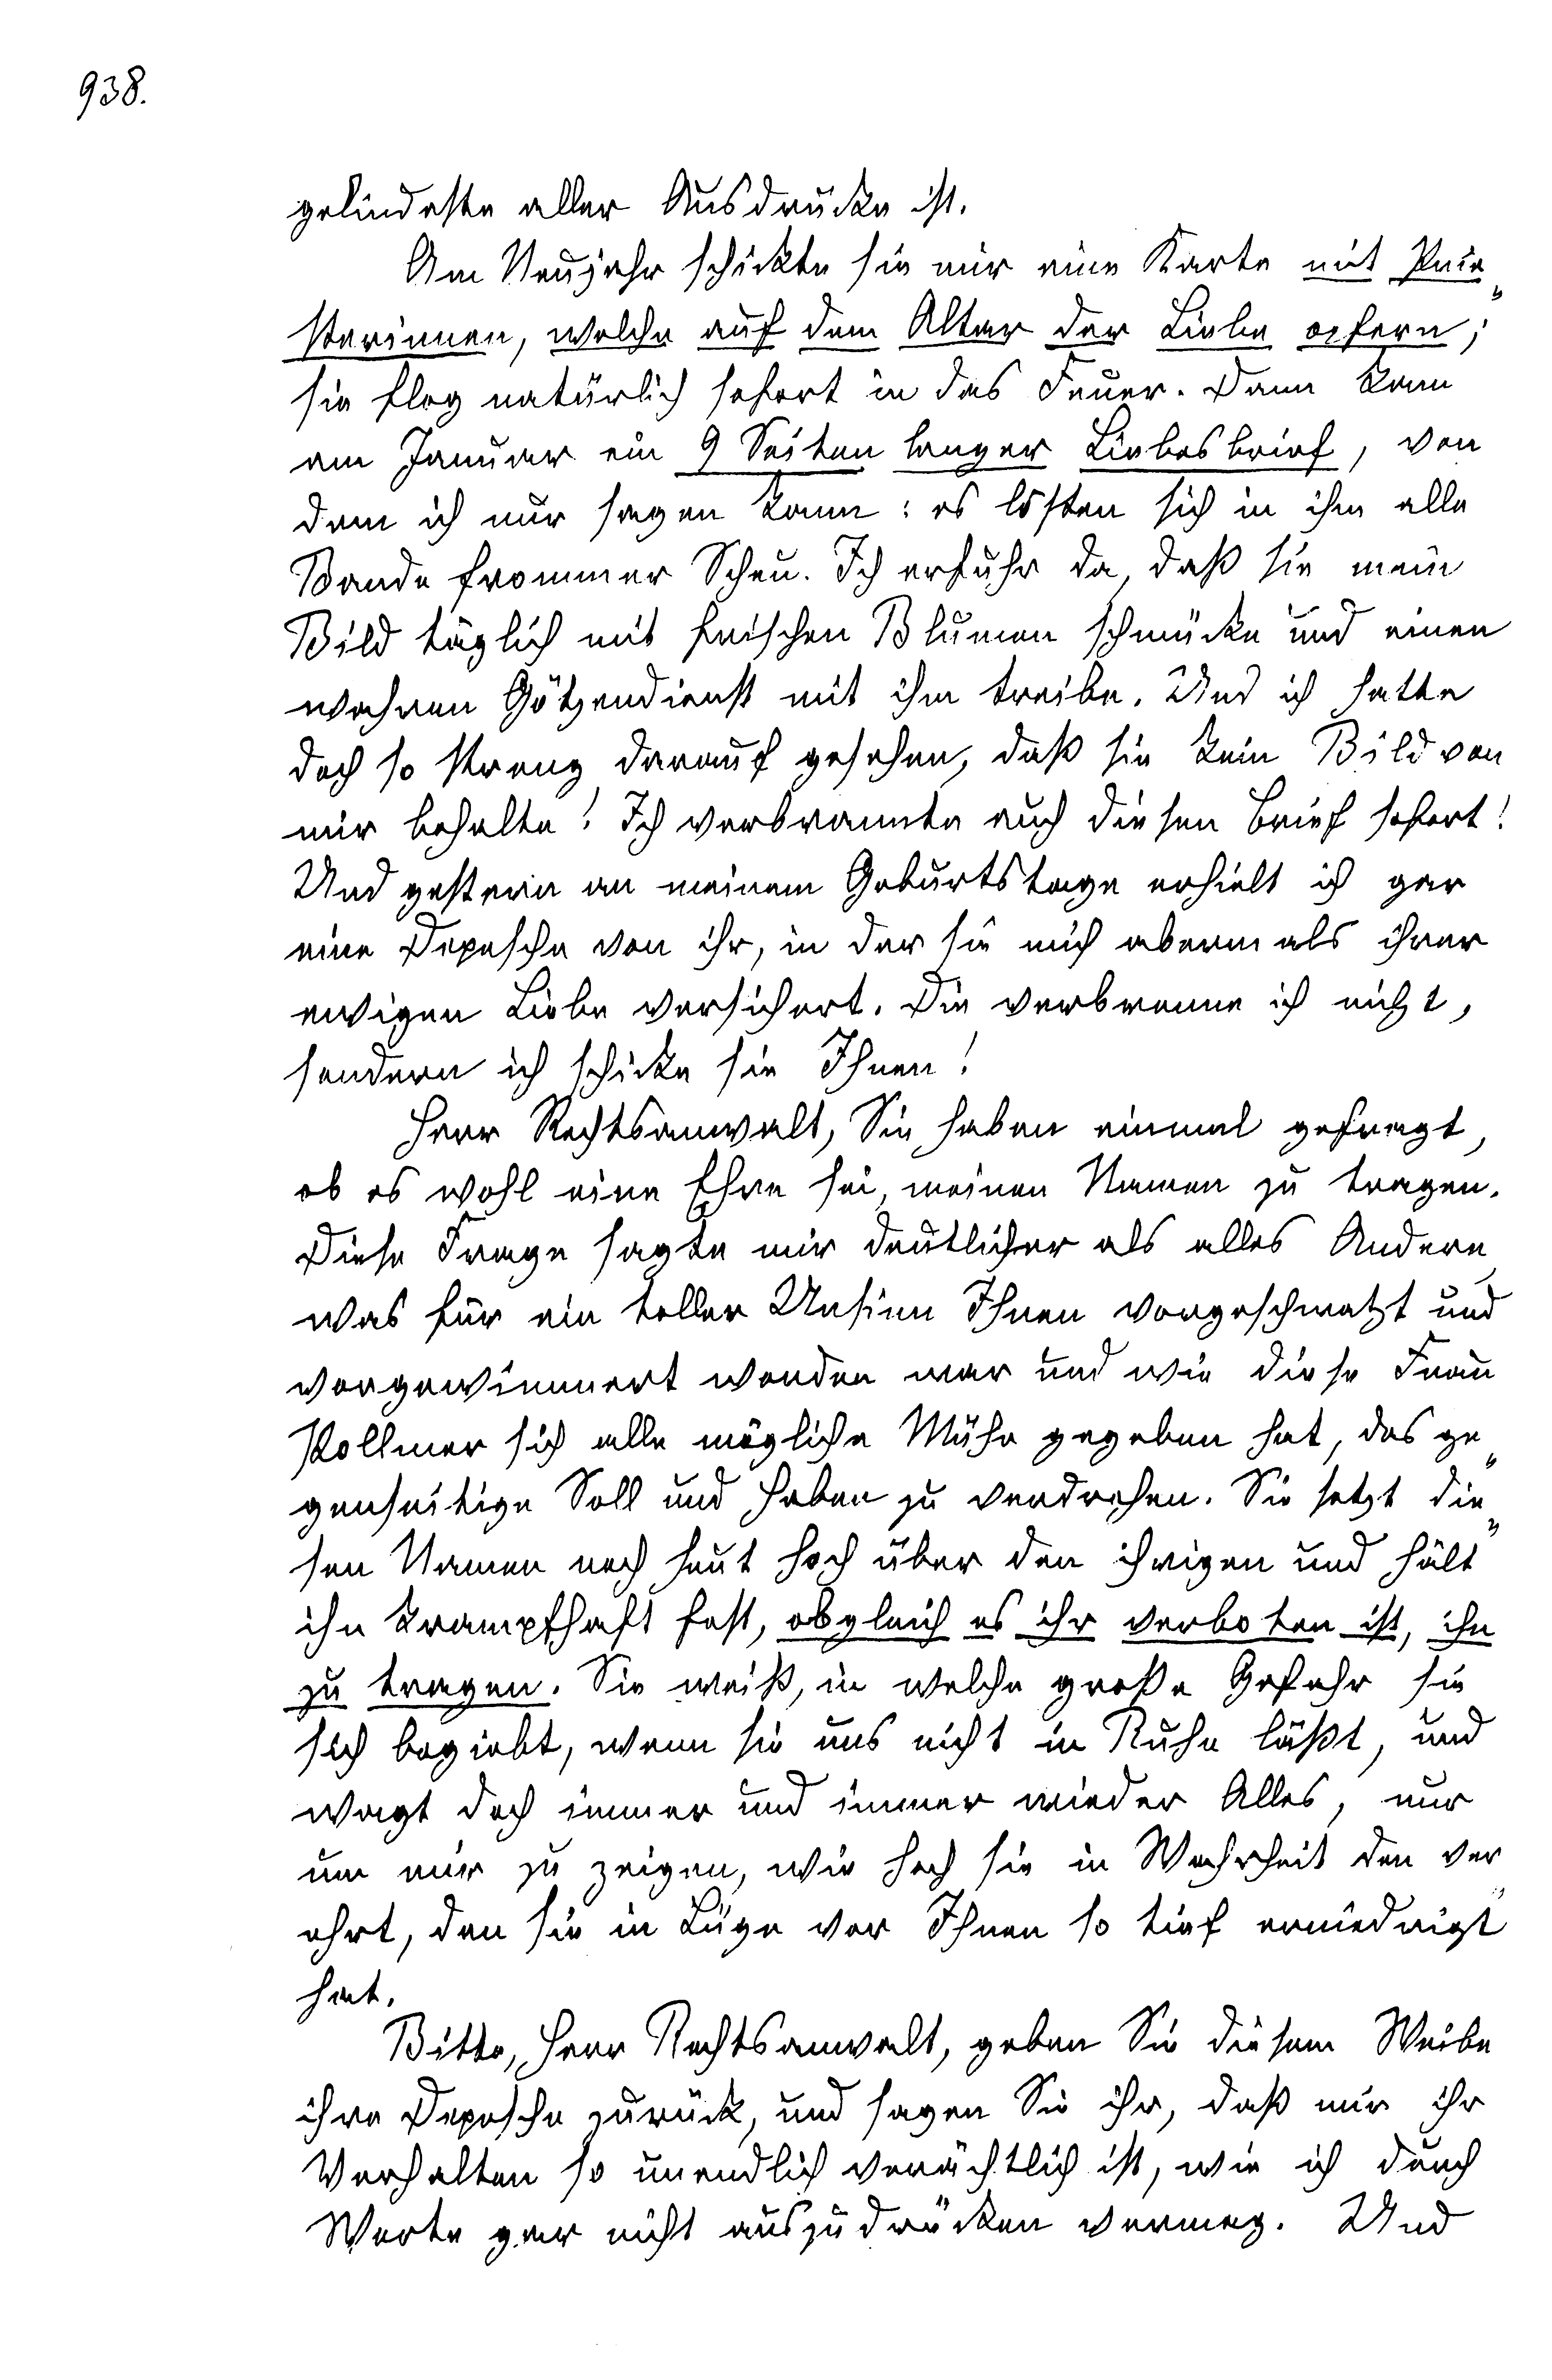 938.
gelindeste aller Ausdrücke ist.
Am Neujahr schickte sie mir eine Karte mit Prie„
sterinnen, welche auf dem Altar der Liebe opfern;
sie flog natürlich sofort in das Feuer. Dann kam
am Januar ein 9 Seiten langer Liebesbrief, von
dem ich nur sagen kann: es lösten sich in ihm alle
Bande frommer Scheu. Ich erfuhr da, daß sie mein
Bild täglich mit frischen Blumen schmücke und einen
wahren Götzendienst mit ihm treibe. Und ich hatte
doch so streng darauf gesehen, daß sie kein Bild von
mir behalte! Ich verbrannte auch diesen Brief sofort!
Und gestern an meinem Geburtstage erhielt ich gar
eine Depesche von ihr, in der sie mich abermals ihrer
ewigen Liebe versichert. Die verbrenne ich nicht,
sondern ich schicke sie Ihnen!
Herr Rechtsanwalt, Sie haben einmal gefragt,
ob es wohl eine Ehre sei, meinen Namen zu tragen.
Diese Frage sagte mir deutlicher als alles Andere,
was für ein toller Unsinn Ihnen vorgeschwatzt und
vorgewimmert worden war und wie diese Frau
Pollmer sich alle mögliche Mühe gegeben hat, das ge„
genseitige Soll und Haben zu verdrehen. Sie setzt die„
sen Namen noch heut hoch über den ihrigen und hält
ihn krampfhaft fest, obgleich es ihr verboten ist, ihn
zu tragen. Sie weiß, in welche große Gefahr sie
sich begiebt, wenn sie uns nicht in Ruhe läßt, und
wagt doch immer und immer wieder Alles, nur
um mir zu zeigen, wie hoch sie in Wahrheit den ver„
ehrt, den sie in Lüge vor Ihnen so tief erniedrigt
hat.
Bitte, Herr Rechtsanwalt, geben Sie diesem Weibe
ihre Depesche zurück, und sagen Sie ihr, daß mir ihr
Verhalten so unendlich verächtlich ist, wie ich durch
Worte gar nicht auszudrücken vermag. Und